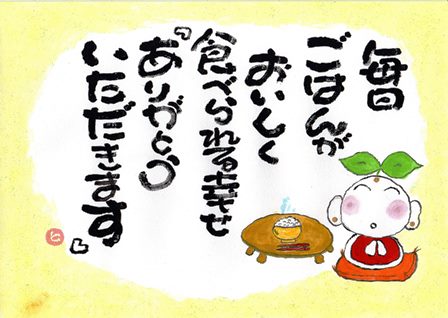 毎日
ごはんが
おいしく
食べられる幸せ
『ありがとう
いただきます』
と